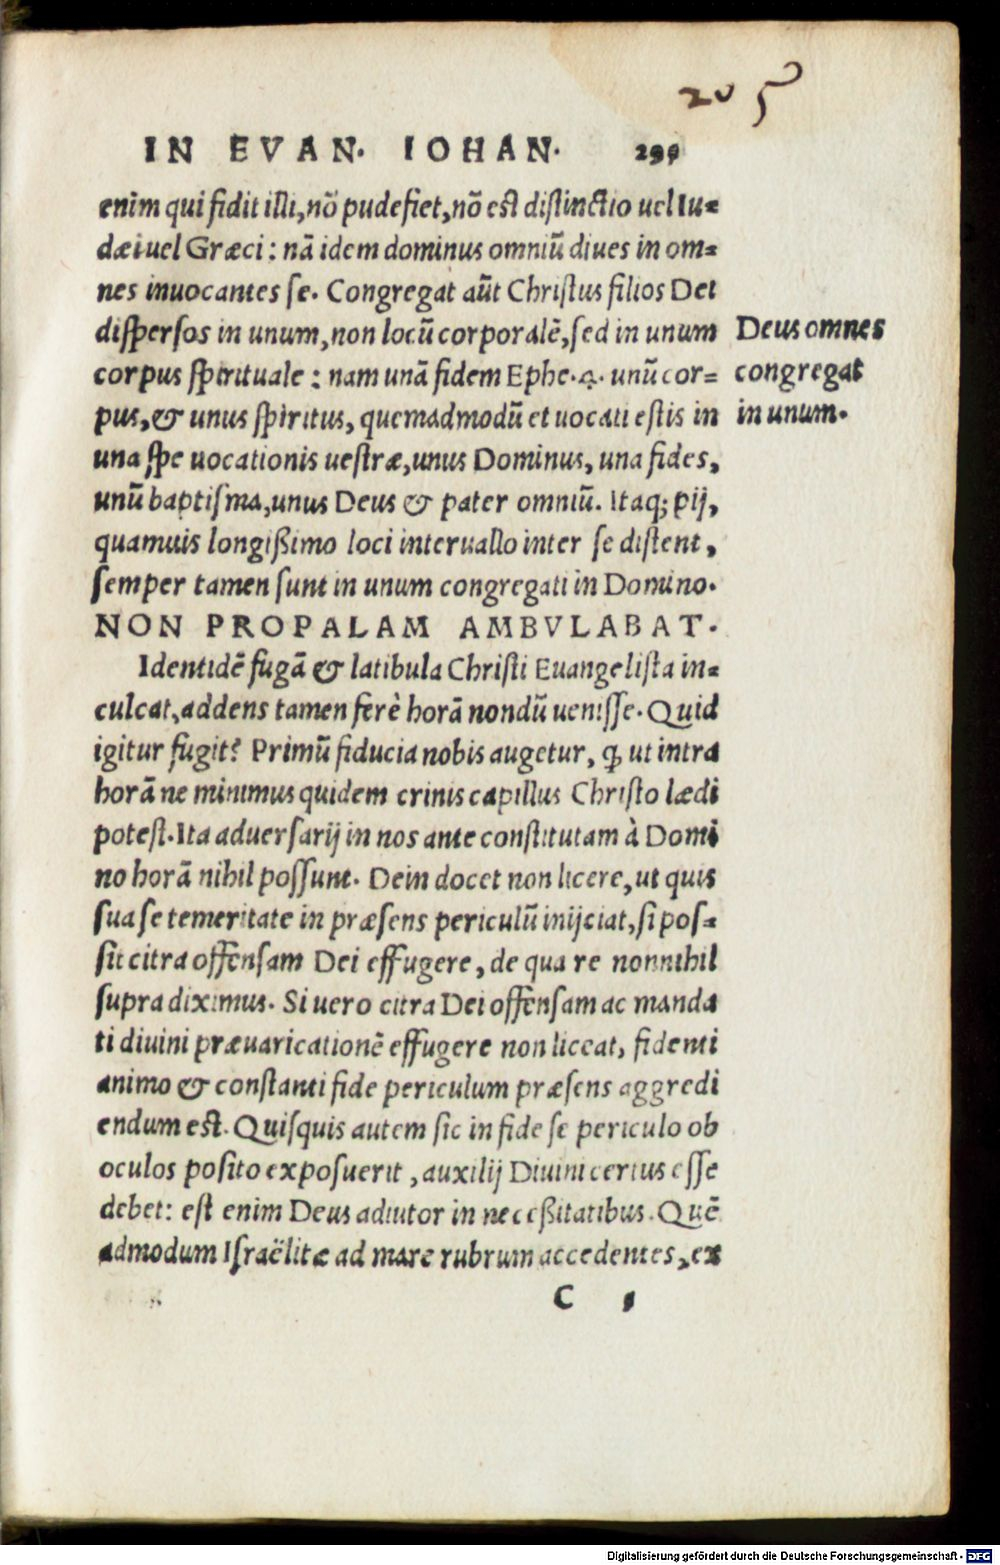 205
IN EVAN. IOHAN. 299
enim qui fidit illi, nō pudefiet, nō est distinctio uel Iu=
dæi uel Græci: nā idem dominus omniū diues in om=
nes inuocantes se. Congregat aūt Christus filios Dei
dispersos in unum, non locū corporalē, sed in unum
corpus spirituale: nam unā fidem Ephe. 4. unū cor=
pus, & unus spiritus, quemadmodū et uocati estis in
una spe uocationis uestræ, unus Dominus, una fides,
unū baptisma, unus Deus & pater omniū. Itaq; pij,
quamuis longißimo loci interuallo inter se distent,
semper tamen sunt in unum congregati in Domino.
Deus omnes
congregat
in unum.
NON PROPALAM AMBVLABAT.
Identidē fugā & latibula Christi Euangelista in=
culcat, addens tamen ferè horā nondū uenisse. Quid
igitur fugit? Primū fiducia nobis augetur, ꝙ ut intra
horā ne minimus quidem crinis capillus Christo lædi
potest. Ita aduersarij in nos ante constitutam à Domi
no horā nihil possunt. Dein docet non licere, ut quis
sua se temeritate in præsens periculū inijciat, si pos=
sit citra offensam Dei effugere, de qua re nonnihil
supra diximus. Si uero citra Dei offensam ac manda
ti diuini præuaricationē effugere non liceat, fidenti
animo & constanti fide periculum præsens aggredi
endum est. Quisquis autem sic in fide se periculo ob
oculos posito exposuerit, auxilij Diuini certus esse
debet: est enim Deus adiutor in neceßitatibus. Quē
admodum Israëlitæ ad mare rubrum accedentes, ex
C
Digitalisierung gefördert durch die Deutsche Forschungsgemeinschaft - DFG